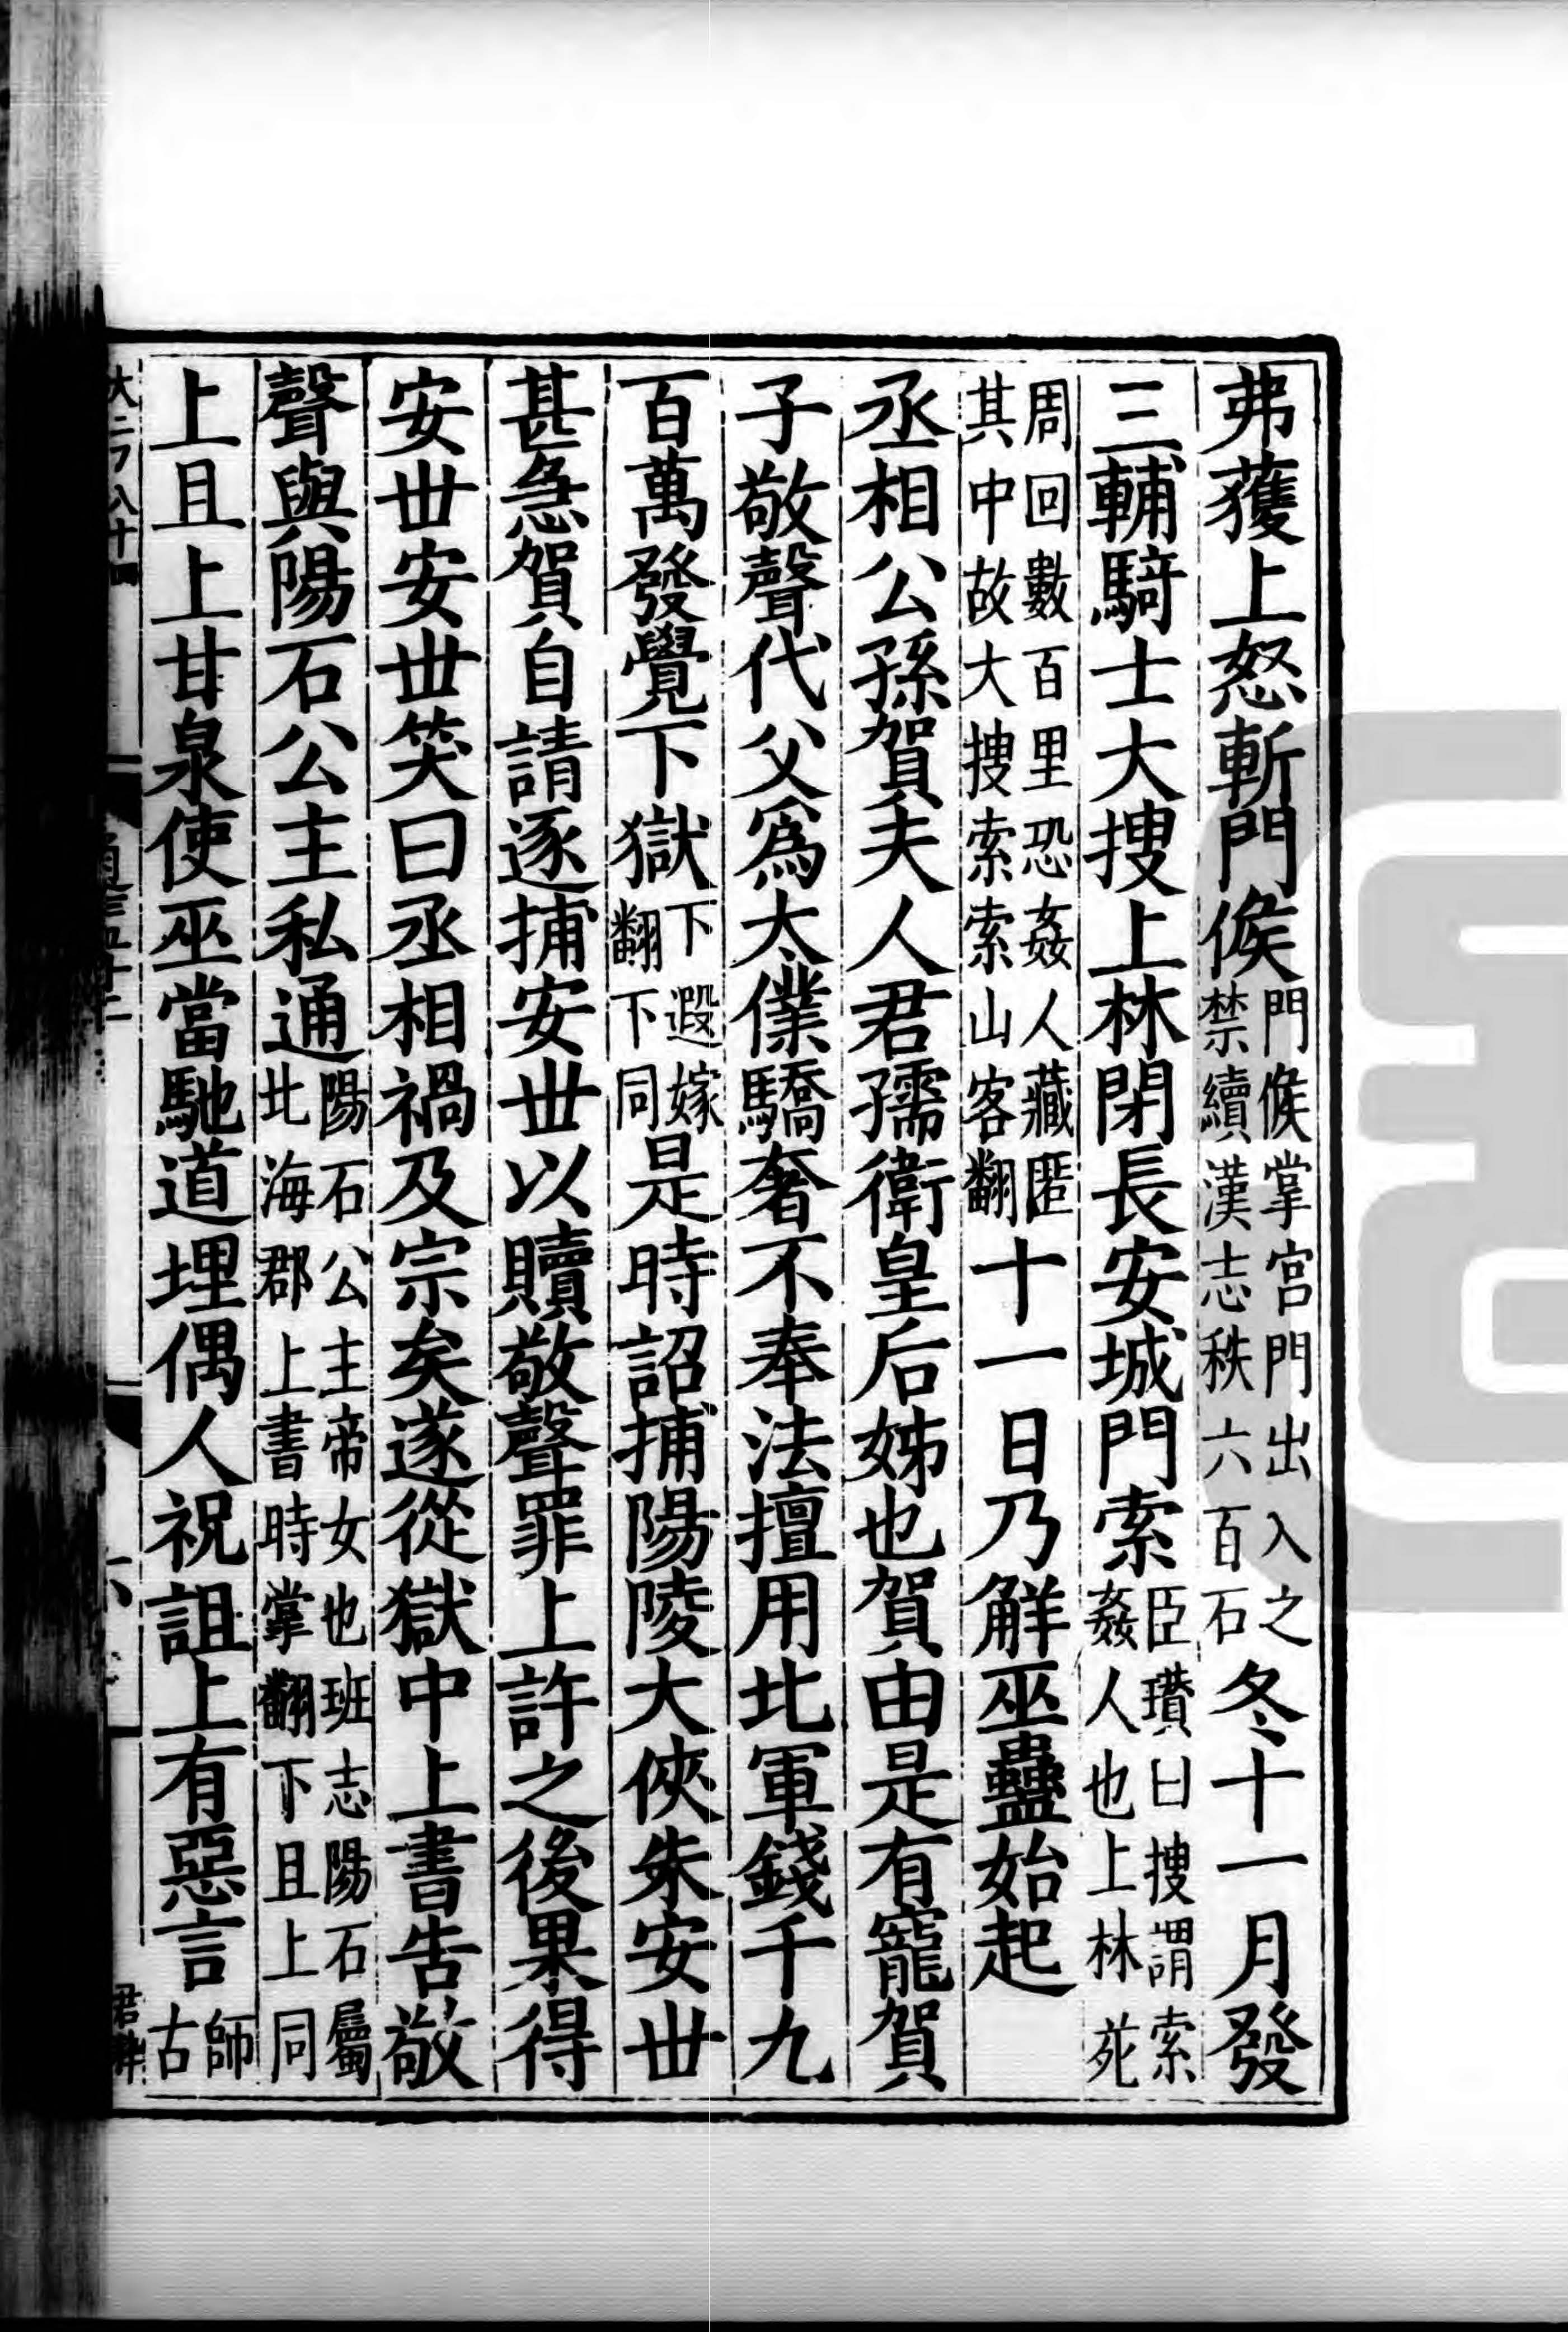 弗獲上怒斬門候門候掌宮門出入之禁續漢志秩六百石冬十一月發
三輔騎士大搜上林閉長安城門索臣瓚曰搜謂索姦人也上林苑
周回數百里恐姦人藏匿其中故大搜索索山客翻十一日乃解巫蠱始起
丞相公孫賀夫人君孺衛皇后姊也賀由是有寵賀
子敬聲代父爲太僕驕奢不奉法擅用北軍錢千九
百萬發覺下獄下遐嫁翻下同是時詔捕陽陵大俠朱安世
甚急賀自請逐捕安世以贖敬聲罪上許之後果得
安世安世笑曰丞相禍及宗矣遂從獄中上書告敬
聲與陽石公主私通陽石公主帝女也班志陽石屬北海郡上書時掌翻下且上同
上且上甘泉使巫當馳道埋偶人祝詛上有惡言師古